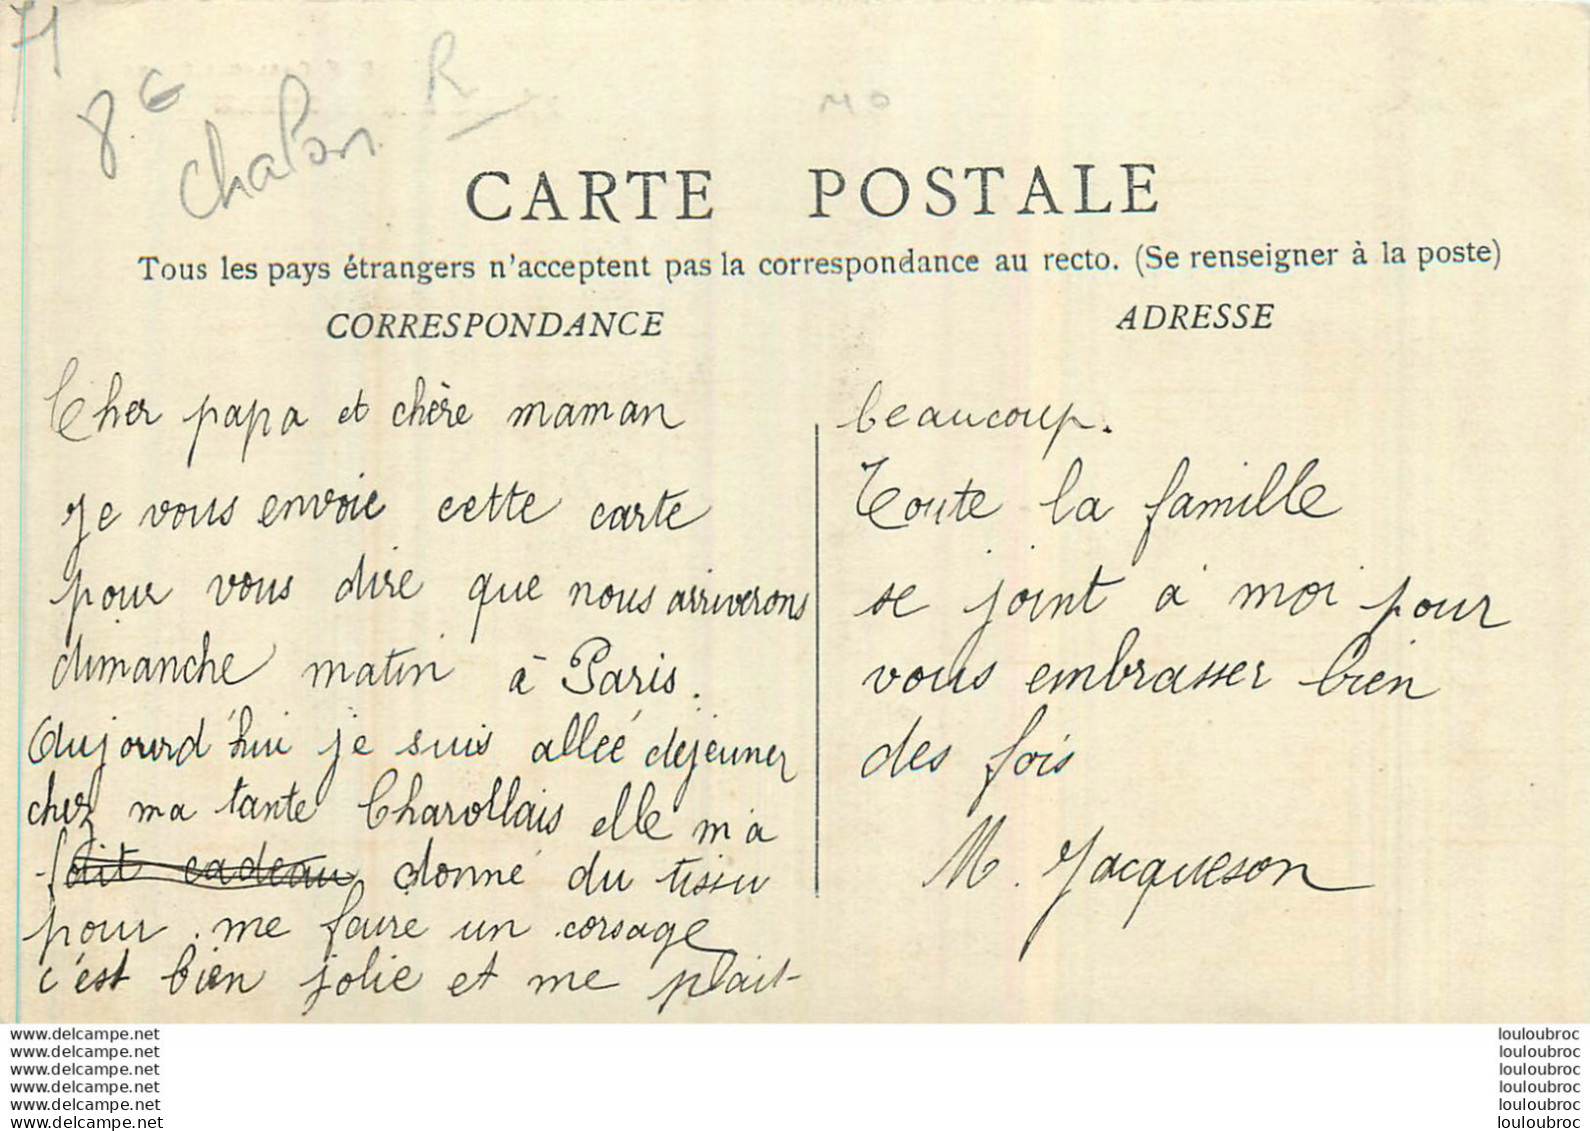 71
8 €
chalon
R
MO
CARTE POSTALE
Tous les pays étrangers n'acceptent pas la correspondance au recto. (Se renseigner à la poste)
CORRESPONDANCE
Cher papa et chère maman
Je vous envoie cette carte
pour vous dire que nous arriverons
dimanche matin à Paris.
Aujourd'hui je suis allée déjeuner
chez ma tante Charollais elle m'a
fait cadeau donné du tissu
pour me faire un corsage
c'est bien jolie et me plait
ADRESSE
beaucoup.
Toute la famille
se joint à moi pour
vous embrasser bien
des fois
M. Jacqueson
www.delcampe.net
www.delcampe.net
www.delcampe.net
www.delcampe.net
www.delcampe.net
www.delcampe.net
louloubroc
louloubroc
louloubroc
louloubroc
louloubroc
louloubroc